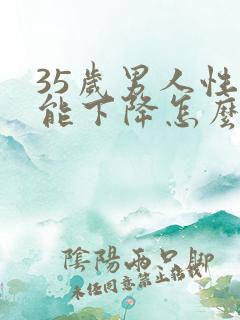 35歲男人性
能下降怎麼
陰陽兩只腳
未经同意禁止搭载